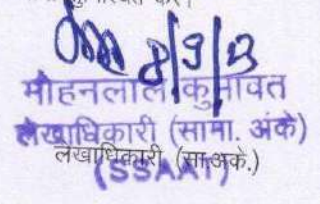 8/9/13
मोहनलाल कुमावत
लेखाधिकारी (सामा. अंके)
लेखाधिकारी (सा.अंके.)
(SSAAT)